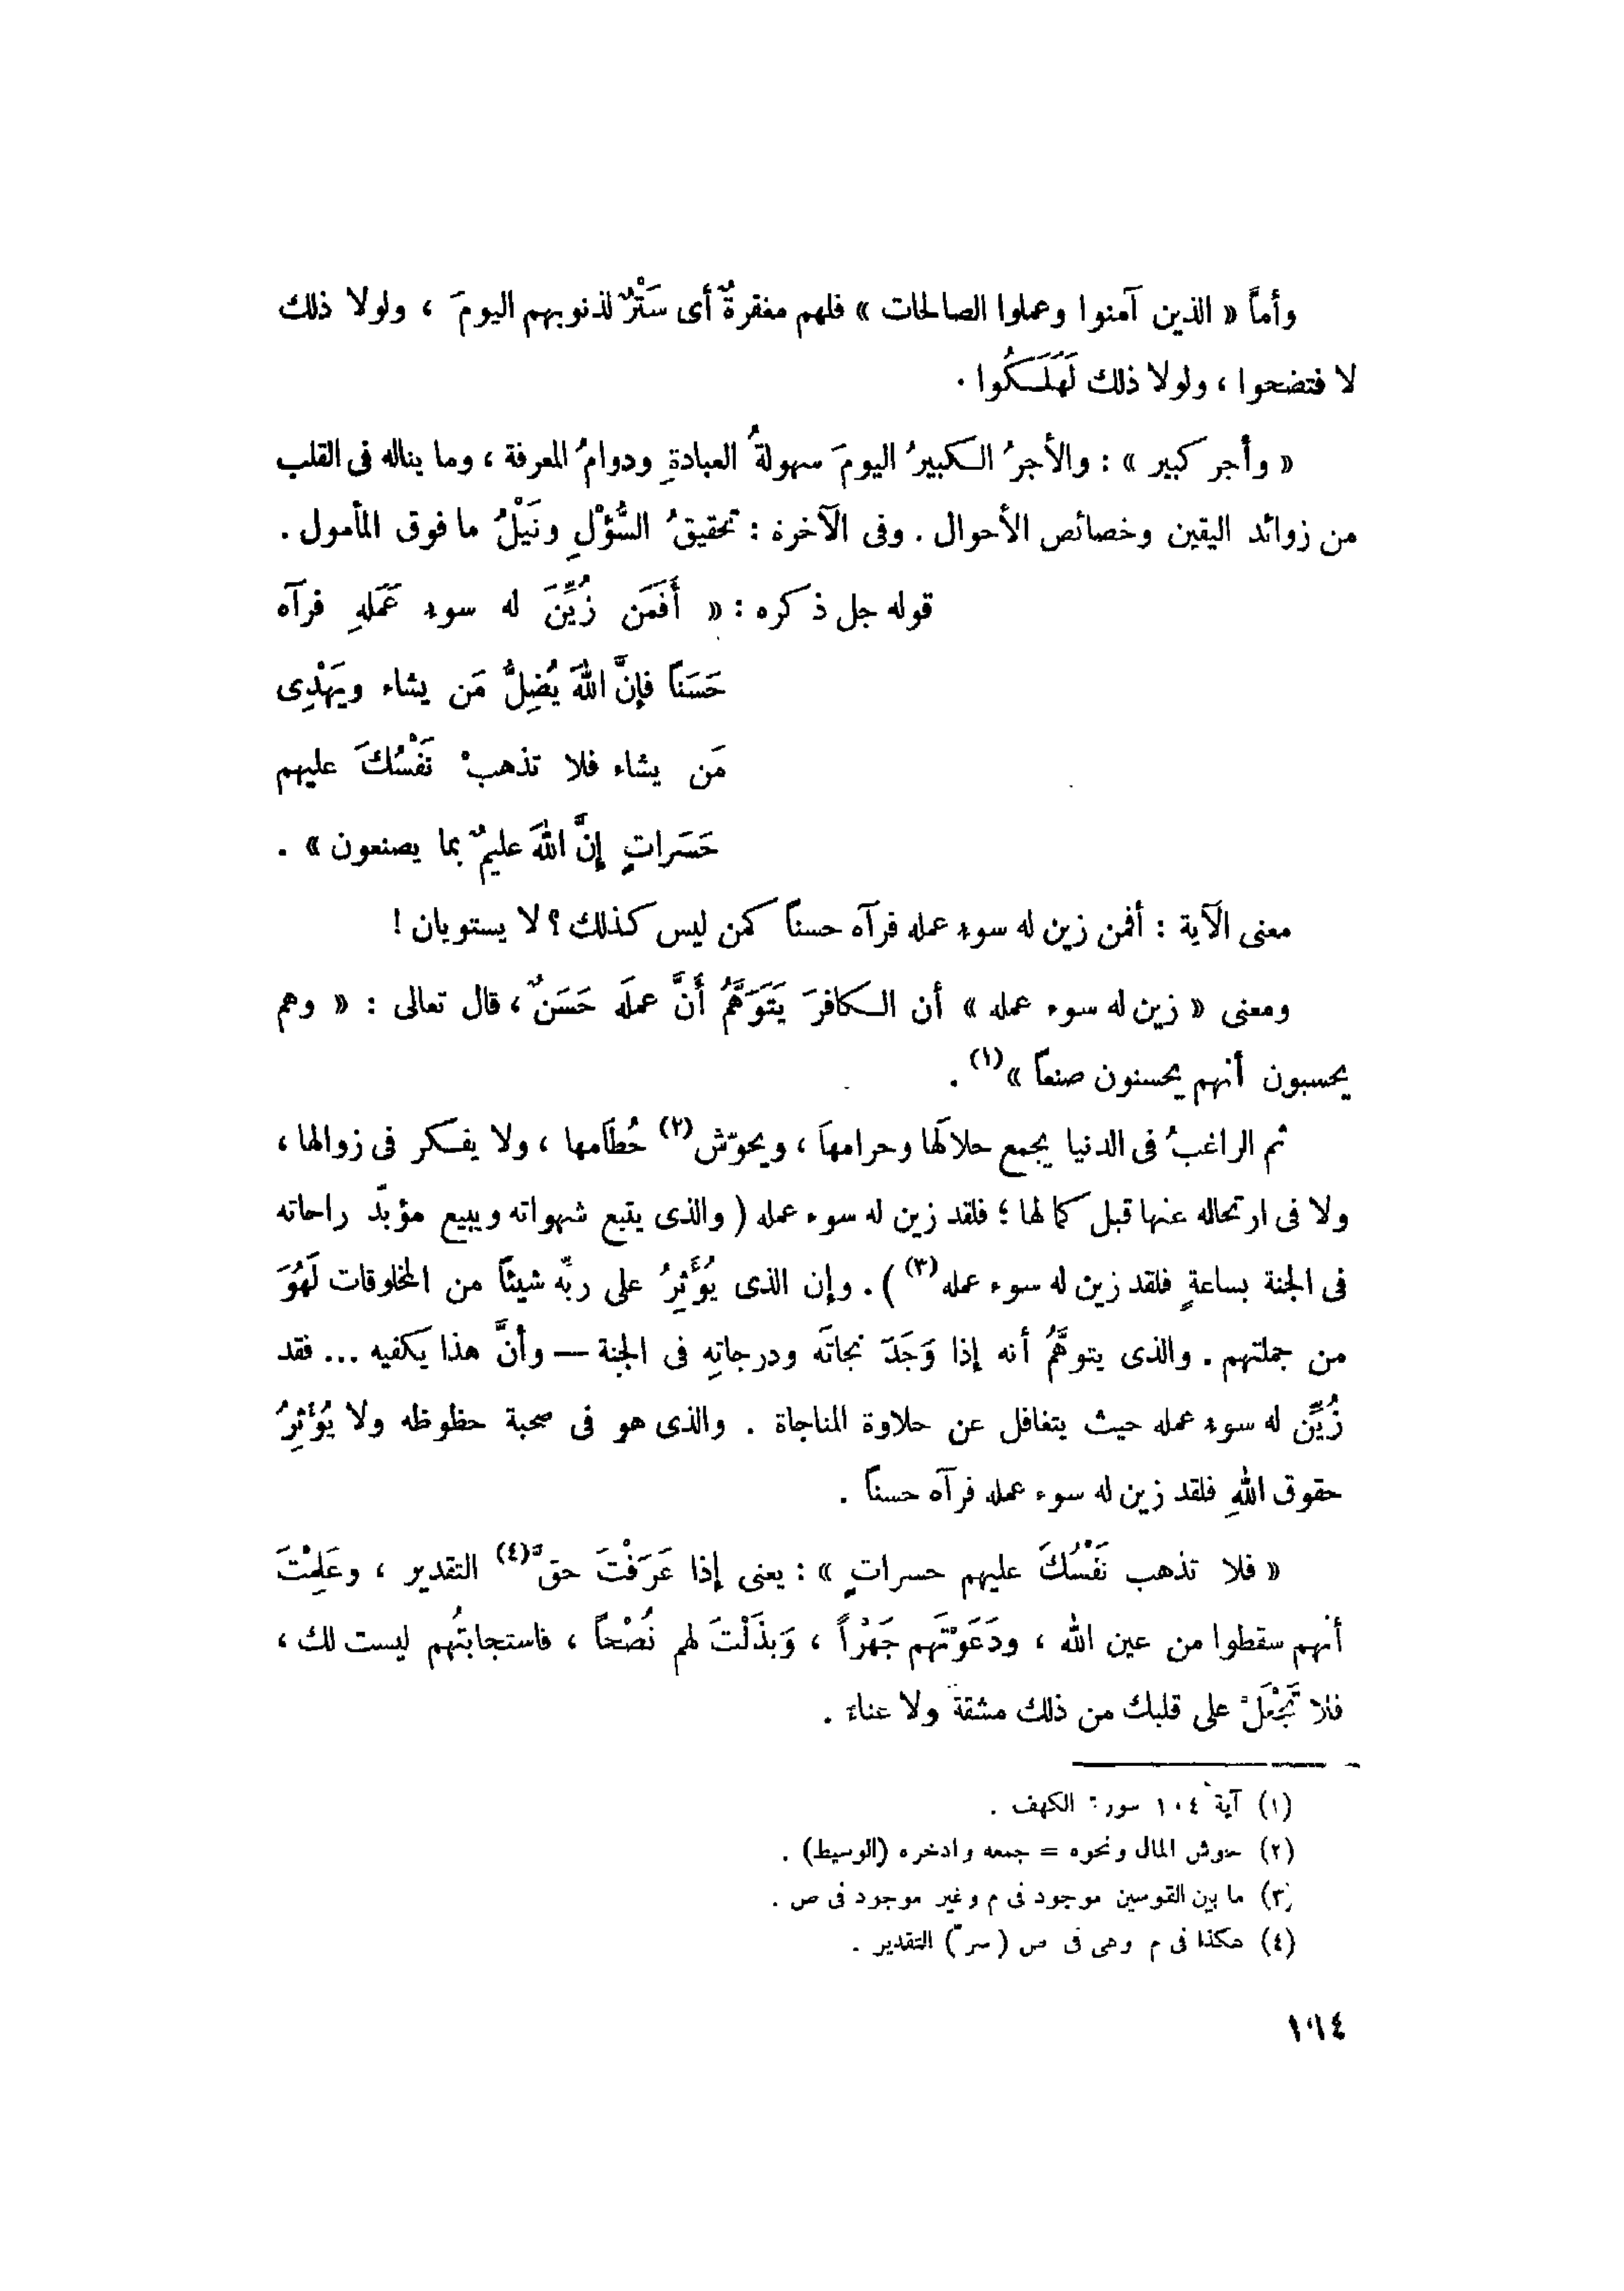 وأماَّ « الذين آمنوا وعملوا الصالحات » فلهم مغفرةٌ أى سَتْرٌ لذنوبهم اليومَ ، ولولا ذلك
لافتضحوا ، ولولا ذلك لَهَلَكُوا .
« وأجر كبير » : والأجرُ الكبيرُ اليومَ سهولةُ العبادةِ ودوامُ المعرفة ، وما يناله فى القلب
من زوائد اليقين وخصائص الأحوال . وفى الآخرة : تحقيقُ السُّؤْلِ ونَيْلُ ما فوق المأمول .
قوله جل ذكره : « أَفَمَن زُيِّنَ له سوء عَمَلهِ فرآه
حَسَناً فإنَّ اللهَ يُضِلُّ مَن يشاء ويَهْدِى
مَن يشاء فلا تذهبْ نَفْسُكَ عليهم
حَسَراتٍ إنَّ اللهَ عليمٌ بما يصنعون » .
معنى الآية : أفمن زين له سوء عمله فرآه حسناً كمن ليس كذلك ؟ لا يستويان !
ومعنى « زين له سوء عمله » أن الكافرَ يَتَوَهَّمُ أَنَّ عملَه حَسَنٌ ، قال تعالى : « وهم
يحسبون أنهم يحسنون صنعاً »(١) .
ثم الراغبُ فى الدنيا يجمع حلالَها وحرامهاَ ، ويحوّش(٢) حُطاَمها ، ولا يفكر فى زوالها ،
ولا فى ارتحاله عنها قبل كمالها ؛ فلقد زين له سوء عمله ( والذى يتبع شهواته ويبيع مؤبدّ راحاته
فى الجنة بساعةٍ فلقد زين له سوء عمله(٣) ) . وإن الذى يُؤَثِرُ على ربِّه شيئاً من المخلوقات لَهُوَ
من جملتهم . والذى يتوهَّمُ أنه إذا وَجَدَ نجاتَه ودرجاتِه فى الجنة — وأنَّ هذا يكفيه ... فقد
زُيِّن له سوء عمله حيث يتغافل عن حلاوة المناجاة . والذى هو فى صحبة حظوظه ولا يُؤَثِرُ
حقوق اللهِ فلقد زين له سوء عمله فرآه حسناً .
« فلا تذهب نَفْسُكَ عليهم حسراتٍ » : يعنى إذا عَرَفْتَ حقَّ(٤) التقدير ، وعَلِمْتَ
أنهم سقطوا من عين الله ، ودَعَوْتَهم جَهْراً ، وَبذَلْتَ لهم نُصْحاً ، فاستجابتُهم ليست لك ،
فلا تَجْعَلْ على قلبك من ذلك مشقة ولا عناء .
(١) آية ١٠٤ سورة الكهف .
(٢) حوش المال ونحوه = جمعه وادخره (الوسيط) .
(٣) ما بين القوسين موجود فى م وغير موجود فى ص .
(٤) هكذا فى م وهى فى ص (سرّ) التقدير .
١٩٤